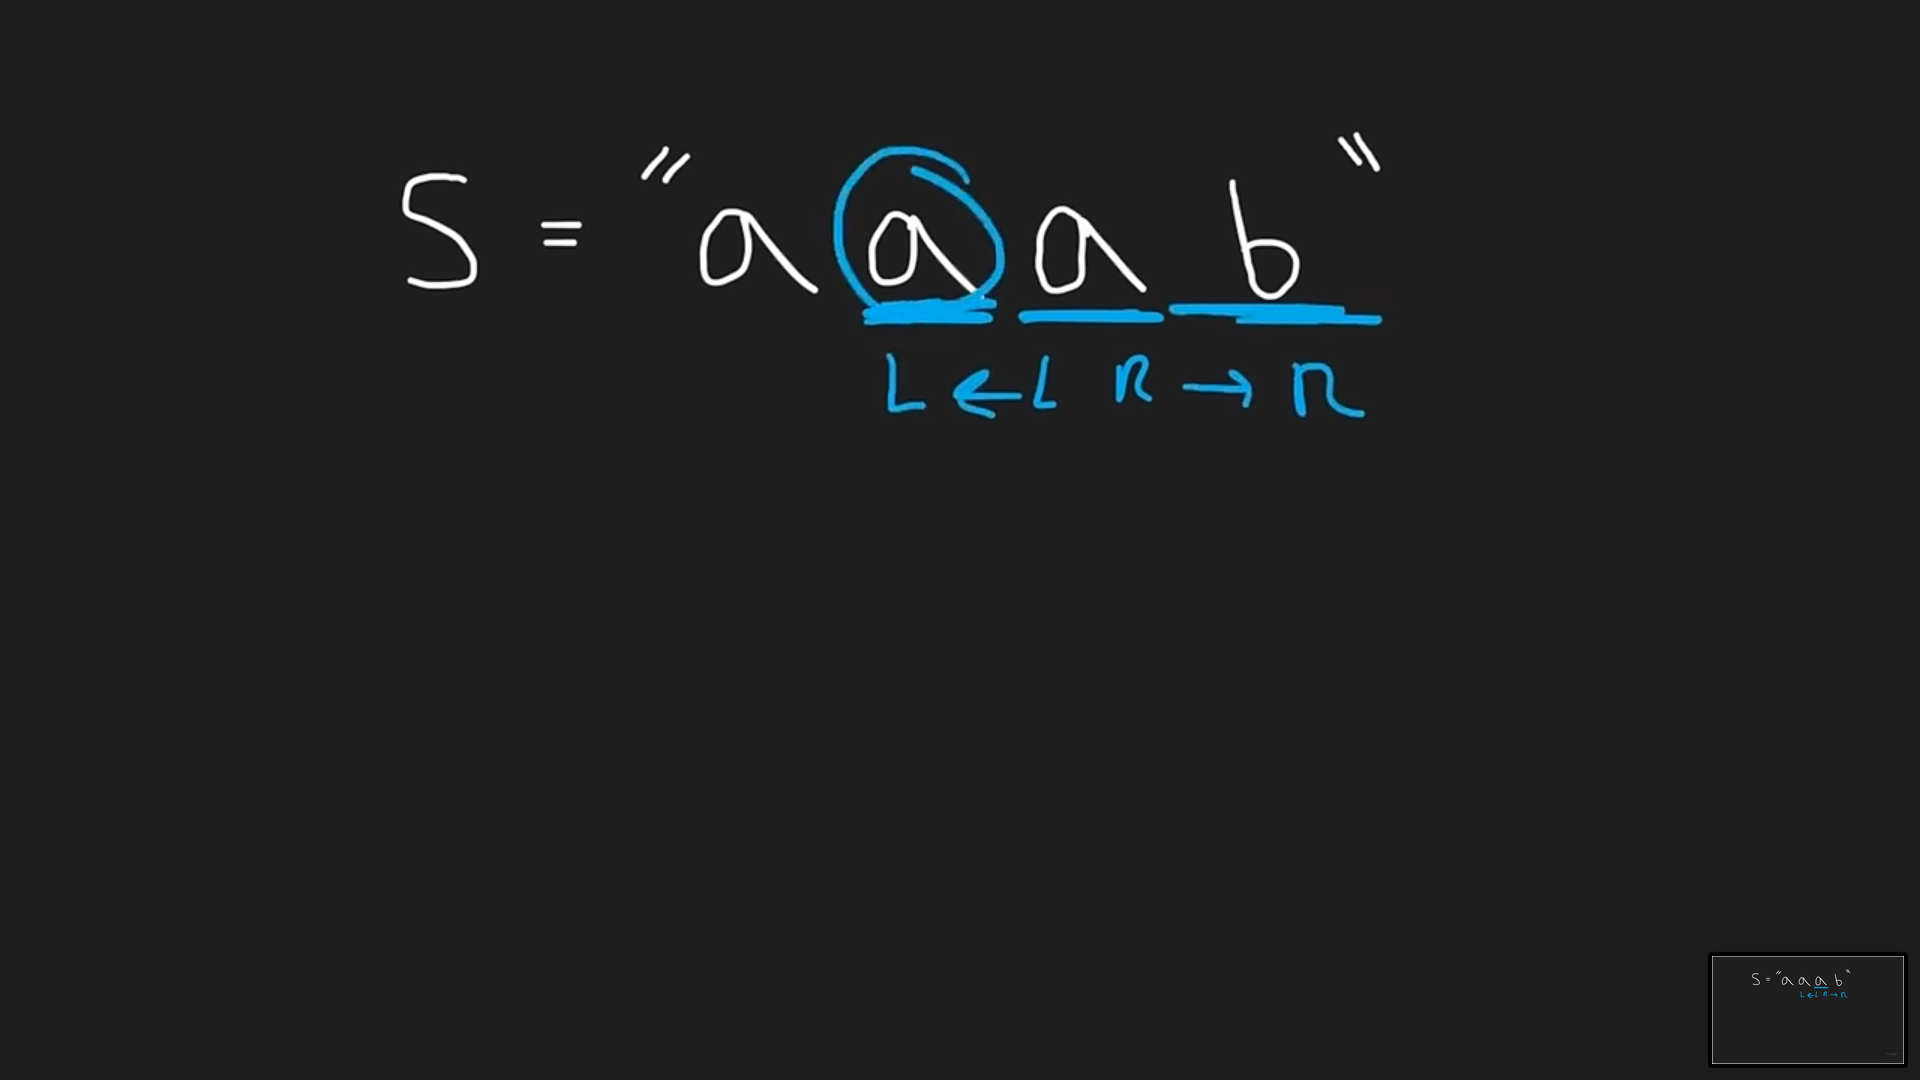 S = "a a a b"
L ← L R → R
S = "a a a b"
L ← L R → R